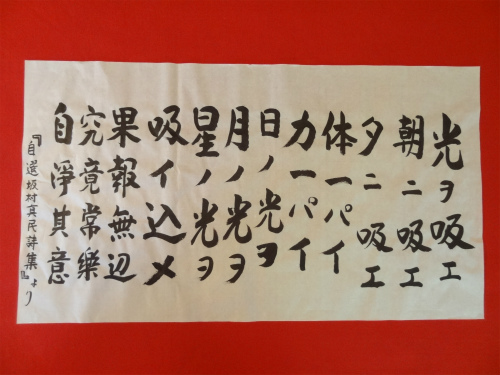 光ヲ吸エ
朝ニ吸エ
夕ニ吸エ
体一パイ
力一パイ
日ノ光ヲ
月ノ光ヲ
星ノ光ヲ
吸イ込メ
果報無辺
究竟常樂
自淨其意
『自選坂村真民詩集』より